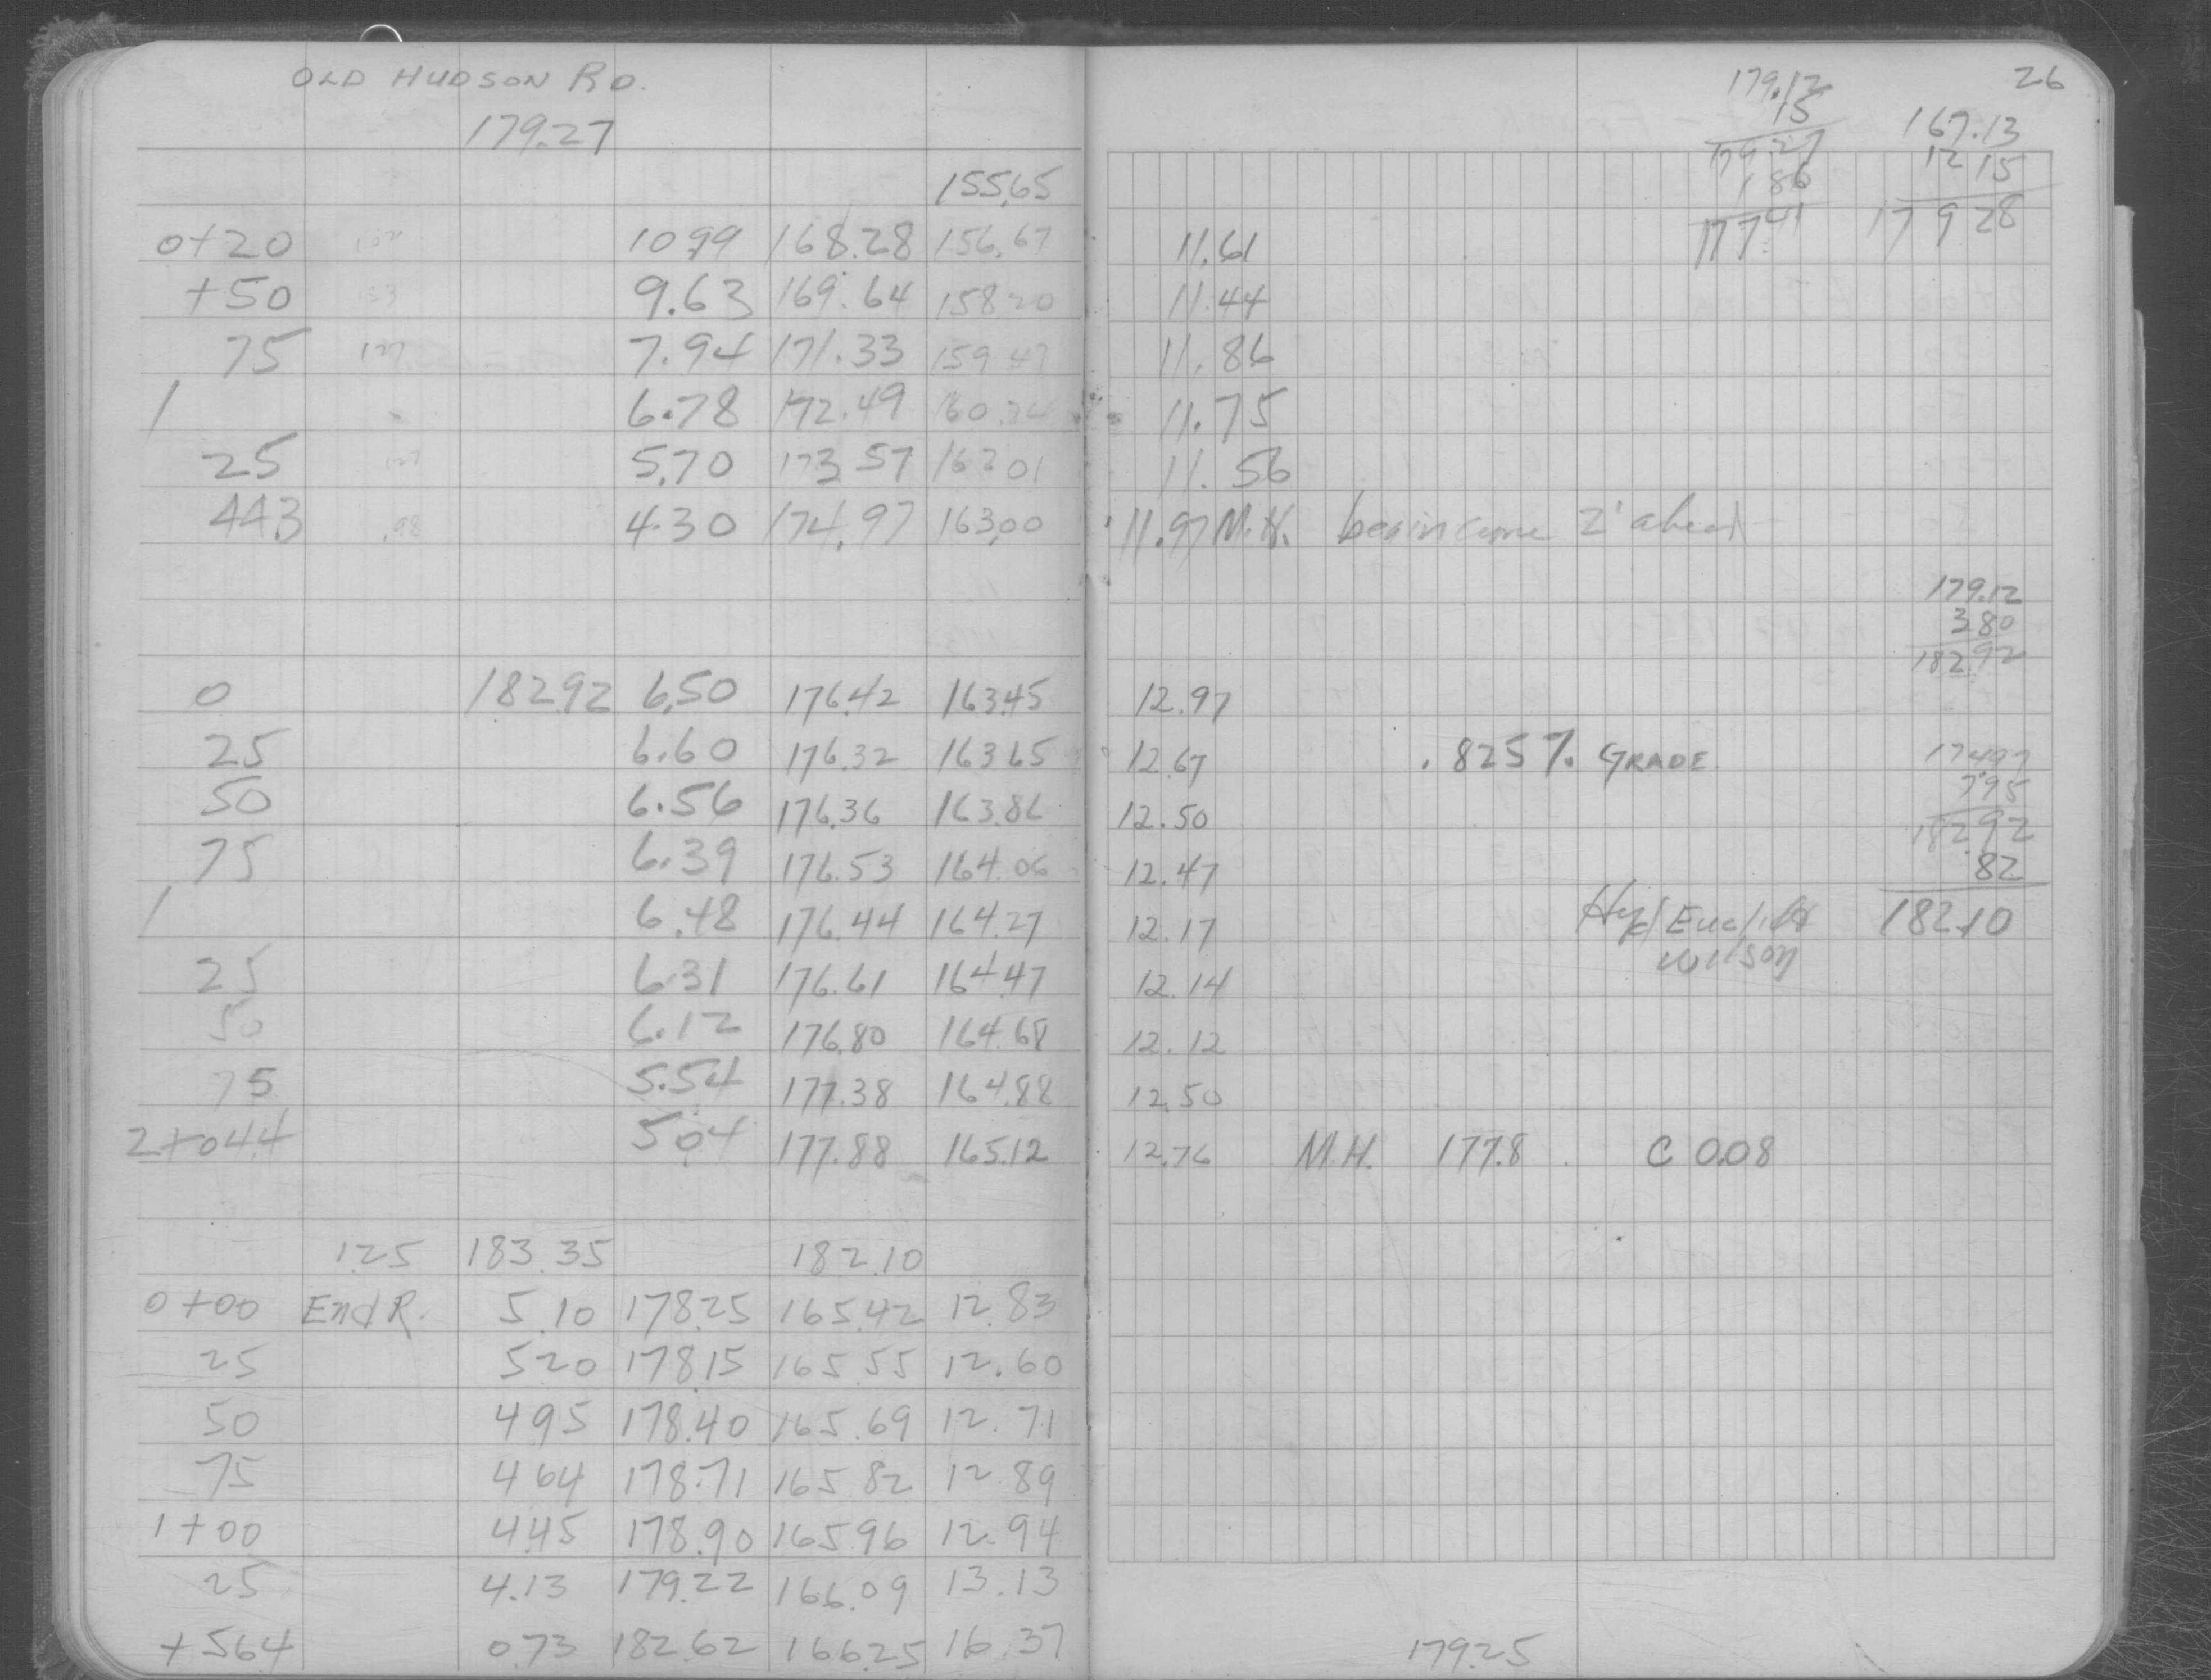 OLD HUDSON RD.
179.27
155.65
0+20 102 10.99 168.28 156.67
+50 153 9.63 169.64 158.20
75 127 7.94 171.33 159.47
1 6.78 172.49 160.74
25 127 5.70 173.57 162.01
44.3 .98 4.30 174.97 163.00
0 182.92 6.50 176.42 163.45
25 6.60 176.32 163.65
50 6.56 176.36 163.86
75 6.39 176.53 164.06
1 6.48 176.44 164.27
25 6.31 176.61 164.47
50 6.12 176.80 164.68
75 5.54 177.38 164.88
2+04.4 5.04 177.88 165.12
1.25 183.35 182.10
0+00 End R. 5.10 178.25 165.42 12.83
25 5.20 178.15 165.55 12.60
50 4.95 178.40 165.69 12.71
75 4.64 178.71 165.82 12.89
1+00 4.45 178.90 165.96 12.94
25 4.13 179.22 166.09 13.13
+56.4 0.73 182.62 166.25 16.37
26
179.12
15
179.27
1 86
177 41
167.13
12 15
179 28
11.61
11.44
11.86
11.75
11.56
11.97 M.H. begin curve 2' ahead
179.12
3 80
182.92
12.97
12.67 .825% GRADE
12.50
12.47
12.17
12.14
12.12
12.50
12.76 M.H. 177.8 C 0.08
174 97
7.95
182.92
.82
Hyd Euclid 182.10
Wilson
179.25